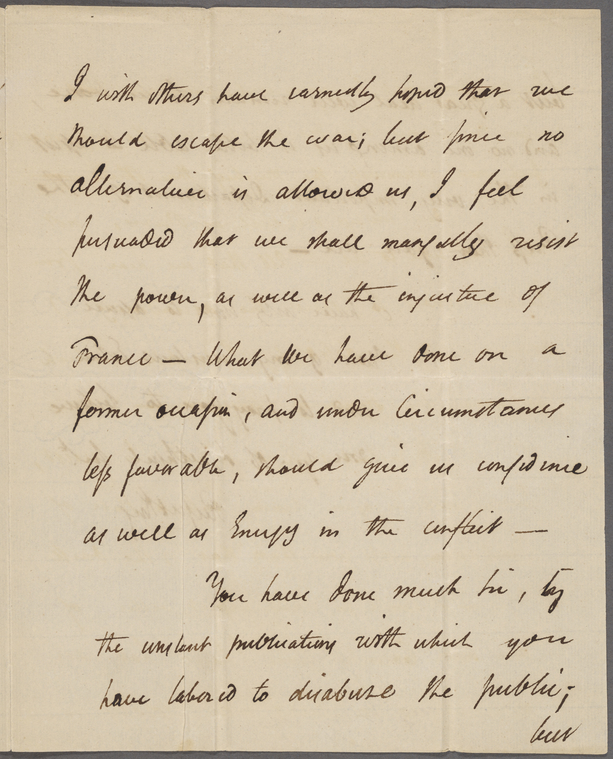 I with others have earnestly hoped that we
should escape the war; but since no
alternative is allowed us, I feel
persuaded that we shall manfully resist
the power, as well as the injustice of
France — What we have done on a
former occasion, and under Circumstances
less favorable, should give us confidence
as well as Energy in the conflict —
You have done much Sir, by
the constant publications with which you
have labored to disabuse the public;
but